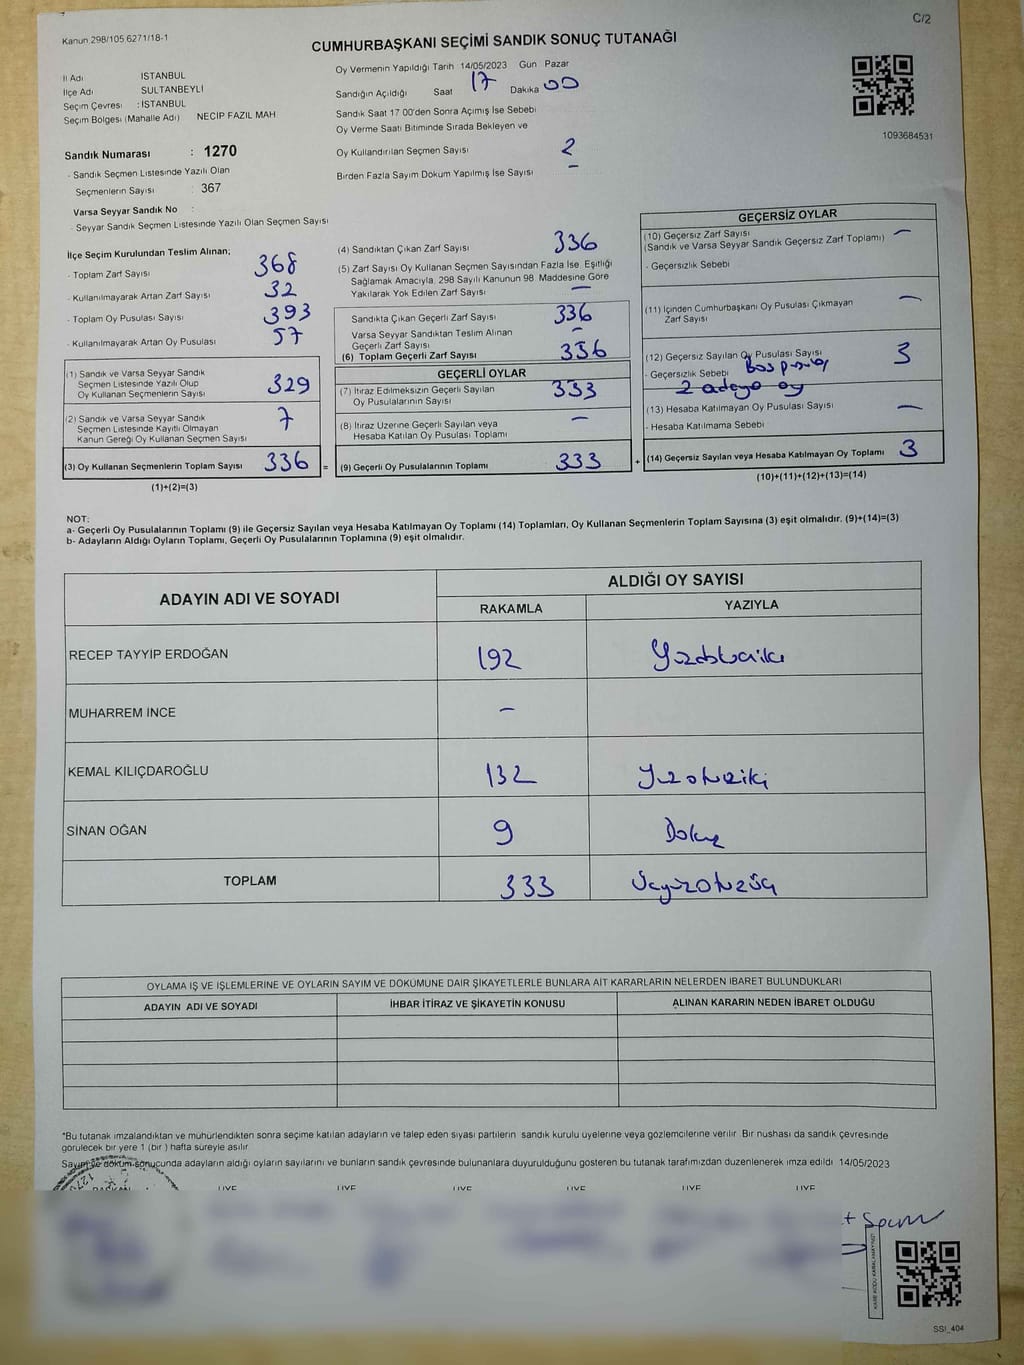 Kanun 298/105,6271/18-1
C/2
CUMHURBAŞKANI SEÇİMİ SANDIK SONUÇ TUTANAĞI
İl Adı İSTANBUL
İlçe Adı SULTANBEYLİ
Seçim Çevresi : İSTANBUL
Seçim Bölgesi (Mahalle Adı) NECİP FAZIL MAH
Sandık Numarası : 1270
- Sandık Seçmen Listesinde Yazılı Olan
Seçmenlerin Sayısı 367
Varsa Seyyar Sandık No :
- Seyyar Sandık Seçmen Listesinde Yazılı Olan Seçmen Sayısı
Oy Vermenin Yapıldığı Tarih 14/05/2023 Gün Pazar
Sandığın Açıldığı Saat 17 Dakika 00
Sandık Saat 17 00'den Sonra Açımış İse Sebebi
Oy Verme Saati Bitiminde Sırada Bekleyen ve
Oy Kullandırılan Seçmen Sayısı 2
Birden Fazla Sayım Döküm Yapılmış İse Sayısı –
1093684531
İlçe Seçim Kurulundan Teslim Alınan;
- Toplam Zarf Sayısı 368
- Kullanılmayarak Artan Zarf Sayısı 32
- Toplam Oy Pusulası Sayısı 393
- Kullanılmayarak Artan Oy Pusulası 57
(1) Sandık ve Varsa Seyyar Sandık
Seçmen Listesinde Yazılı Olup
Oy Kullanan Seçmenlerin Sayısı 329
(2) Sandık ve Varsa Seyyar Sandık
Seçmen Listesinde Kayıtlı Olmayan
Kanun Gereği Oy Kullanan Seçmen Sayısı 7
(3) Oy Kullanan Seçmenlerin Toplam Sayısı 336 =
(1)+(2)=(3)
(4) Sandıktan Çıkan Zarf Sayısı 336
(5) Zarf Sayısı Oy Kullanan Seçmen Sayısından Fazla İse, Eşitliği
Sağlamak Amacıyla, 298 Sayılı Kanunun 98. Maddesine Göre
Yakılarak Yok Edilen Zarf Sayısı –
Sandıkta Çıkan Geçerli Zarf Sayısı 336
Varsa Seyyar Sandıktan Teslim Alınan
Geçerli Zarf Sayısı –
(6) Toplam Geçerli Zarf Sayısı 336
GEÇERLİ OYLAR
(7) İtiraz Edilmeksizin Geçerli Sayılan
Oy Pusulalarının Sayısı 333
(8) İtiraz Üzerine Geçerli Sayılan veya
Hesaba Katılan Oy Pusulası Toplamı –
(9) Geçerli Oy Pusulalarının Toplamı 333 +
GEÇERSİZ OYLAR
(10) Geçersiz Zarf Sayısı –
(Sandık ve Varsa Seyyar Sandık Geçersiz Zarf Toplamı)
- Geçersizlik Sebebi
(11) İçinden Cumhurbaşkanı Oy Pusulası Çıkmayan –
Zarf Sayısı
(12) Geçersiz Sayılan Oy Pusulası Sayısı 3
- Geçersizlik Sebebi Boş pusula
2 adaya oy
(13) Hesaba Katılmayan Oy Pusulası Sayısı –
- Hesaba Katılmama Sebebi
(14) Geçersiz Sayılan veya Hesaba Katılmayan Oy Toplamı 3
(10)+(11)+(12)+(13)=(14)
NOT:
a- Geçerli Oy Pusulalarının Toplamı (9) ile Geçersiz Sayılan veya Hesaba Katılmayan Oy Toplamı (14) Toplamları, Oy Kullanan Seçmenlerin Toplam Sayısına (3) eşit olmalıdır. (9)+(14)=(3)
b- Adayların Aldığı Oyların Toplamı, Geçerli Oy Pusulalarının Toplamına (9) eşit olmalıdır.
ADAYIN ADI VE SOYADI
ALDIĞI OY SAYISI
RAKAMLA YAZIYLA
RECEP TAYYİP ERDOĞAN 192
MUHARREM İNCE –
KEMAL KILIÇDAROĞLU 132 Yüzotuziki
SİNAN OĞAN 9 Dokuz
TOPLAM 333 Üçyüzotuzüç
OYLAMA İŞ VE İŞLEMLERİNE VE OYLARIN SAYIM VE DÖKÜMÜNE DAİR ŞİKAYETLERLE BUNLARA AİT KARARLARIN NELERDEN İBARET BULUNDUKLARI
ADAYIN ADI VE SOYADI İHBAR İTİRAZ VE ŞİKAYETİN KONUSU ALINAN KARARIN NEDEN İBARET OLDUĞU
*Bu tutanak imzalandıktan ve mühürlendikten sonra seçime katılan adayların ve talep eden siyasi partilerin sandık kurulu üyelerine veya gözlemcilerine verilir. Bir nüshası da sandık çevresinde
görülecek bir yere 1 (bir ) hafta süreyle asılır
Sayım ve döküm sonucunda adayların aldığı oyların sayılarını ve bunların sandık çevresinde bulunanlara duyurulduğunu gösteren bu tutanak tarafımızdan düzenlenerek imza edildi 14/05/2023
ÜYE ÜYE ÜYE ÜYE ÜYE ÜYE
KARE KODU KARALAMAYINIZ!
SSI_404